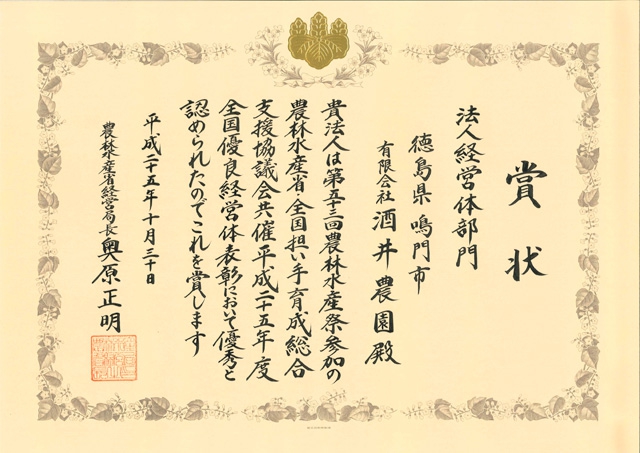 賞状
法人経営体部門
徳島県 鳴門市
有限会社 酒井農園殿
貴法人は第五十三回農林水産祭参加の
農林水産省・全国担い手育成総合
支援協議会共催平成二十五年度
全国優良経営体表彰において優秀と
認められたのでこれを賞します
平成二十五年十月三十日
農林水産省経営局長 奥原正明